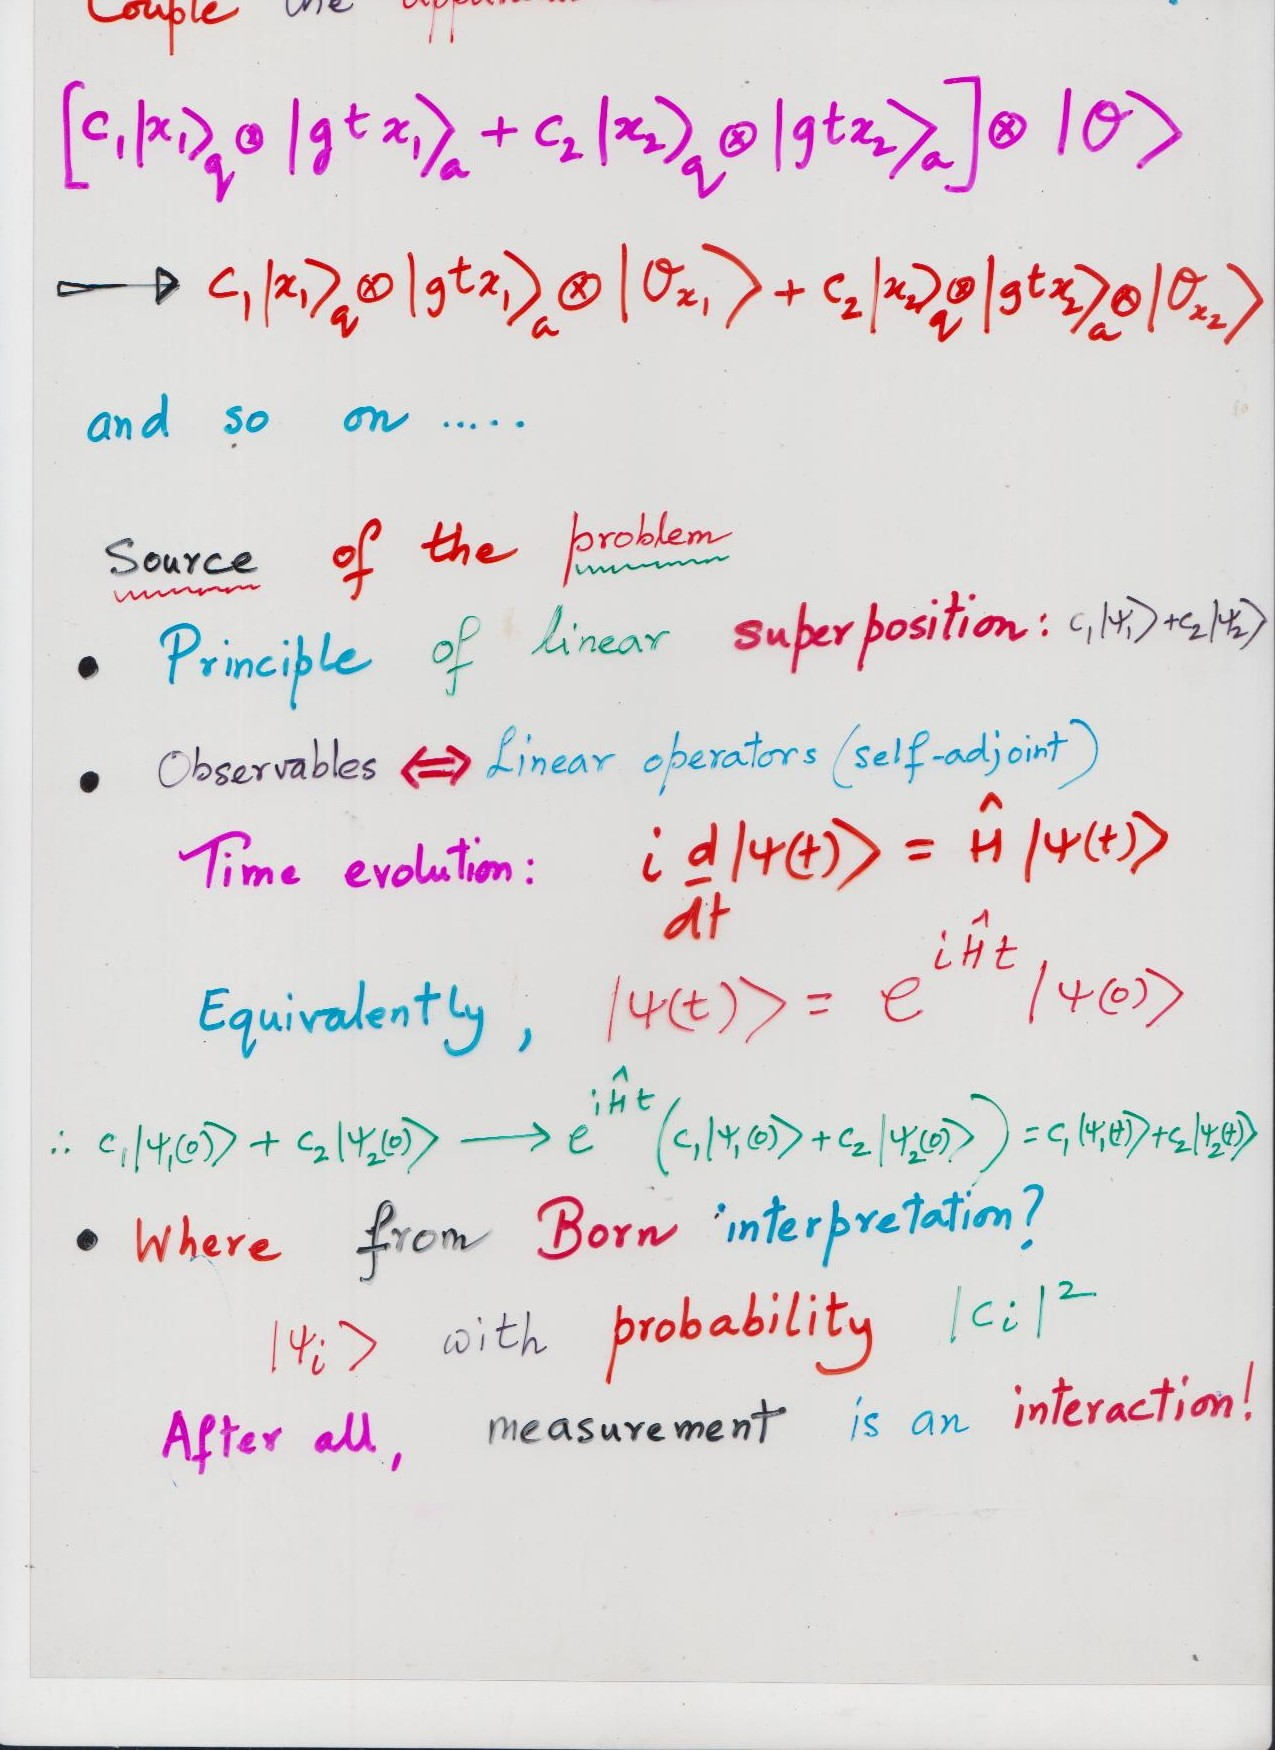 Couple the
[c₁|x₁⟩_q ⊗ |gtx₁⟩_a + c₂|x₂⟩_q ⊗ |gtx₂⟩_a] ⊗ |O⟩
⟶ c₁|x₁⟩_q ⊗ |gtx₁⟩_a ⊗ |O_x₁⟩ + c₂|x₂⟩_q ⊗ |gtx₂⟩_a ⊗ |O_x₂⟩
and so on .....
Source of the problem
• Principle of linear superposition: c₁|ψ₁⟩+c₂|ψ₂⟩
• Observables ⇔ Linear operators (self-adjoint)
Time evolution: i d/dt |ψ(t)⟩ = Ĥ |ψ(t)⟩
Equivalently, |ψ(t)⟩ = e^{iĤt} |ψ(0)⟩
∴ c₁|ψ₁(0)⟩ + c₂|ψ₂(0)⟩ ⟶ e^{iĤt} (c₁|ψ₁(0)⟩ + c₂|ψ₂(0)⟩) = c₁|ψ₁(t)⟩+c₂|ψ₂(t)⟩
• Where from Born interpretation?
|ψᵢ⟩ with probability |cᵢ|²
After all, measurement is an interaction!